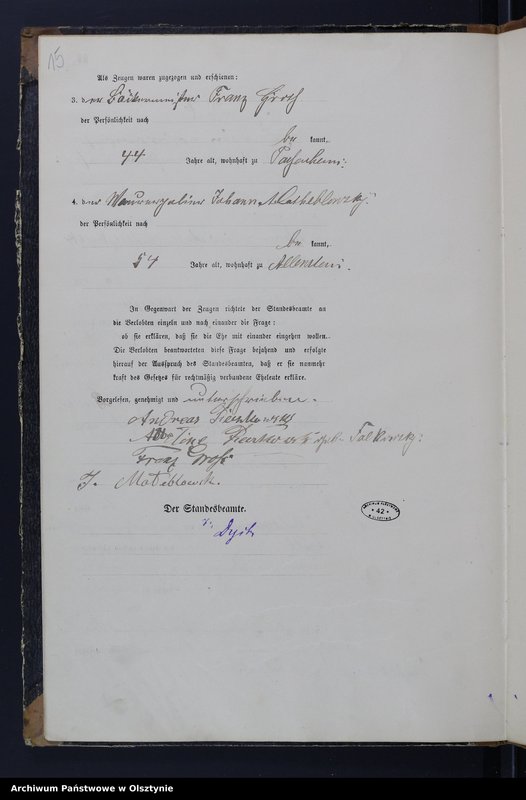 Als Zeugen waren zugezogen und erschienen:
3. der Bäckermeister Franz Groß
der Persönlichkeit nach
be kannt,
44 Jahre alt, wohnhaft zu Passenheim;
4. der Johann
der Persönlichkeit nach
be kannt,
54 Jahre alt, wohnhaft zu Allenstein.
In Gegenwart der Zeugen richtete der Standesbeamte an
die Verlobten einzeln und nach einander die Frage:
ob sie erklären, daß sie die Ehe mit einander eingehen wollen.
Die Verlobten beantworteten diese Frage bejahend und erfolgte
hierauf der Ausspruch des Standesbeamten, daß er sie nunmehr
kraft des Gesetzes für rechtmäßig verbundene Eheleute erkläre.
Vorgelesen, genehmigt und unterschrieben.
Andreas
geb.
Franz Groß
J.
Der Standesbeamte.
42
Archiwum Państwowe w Olsztynie